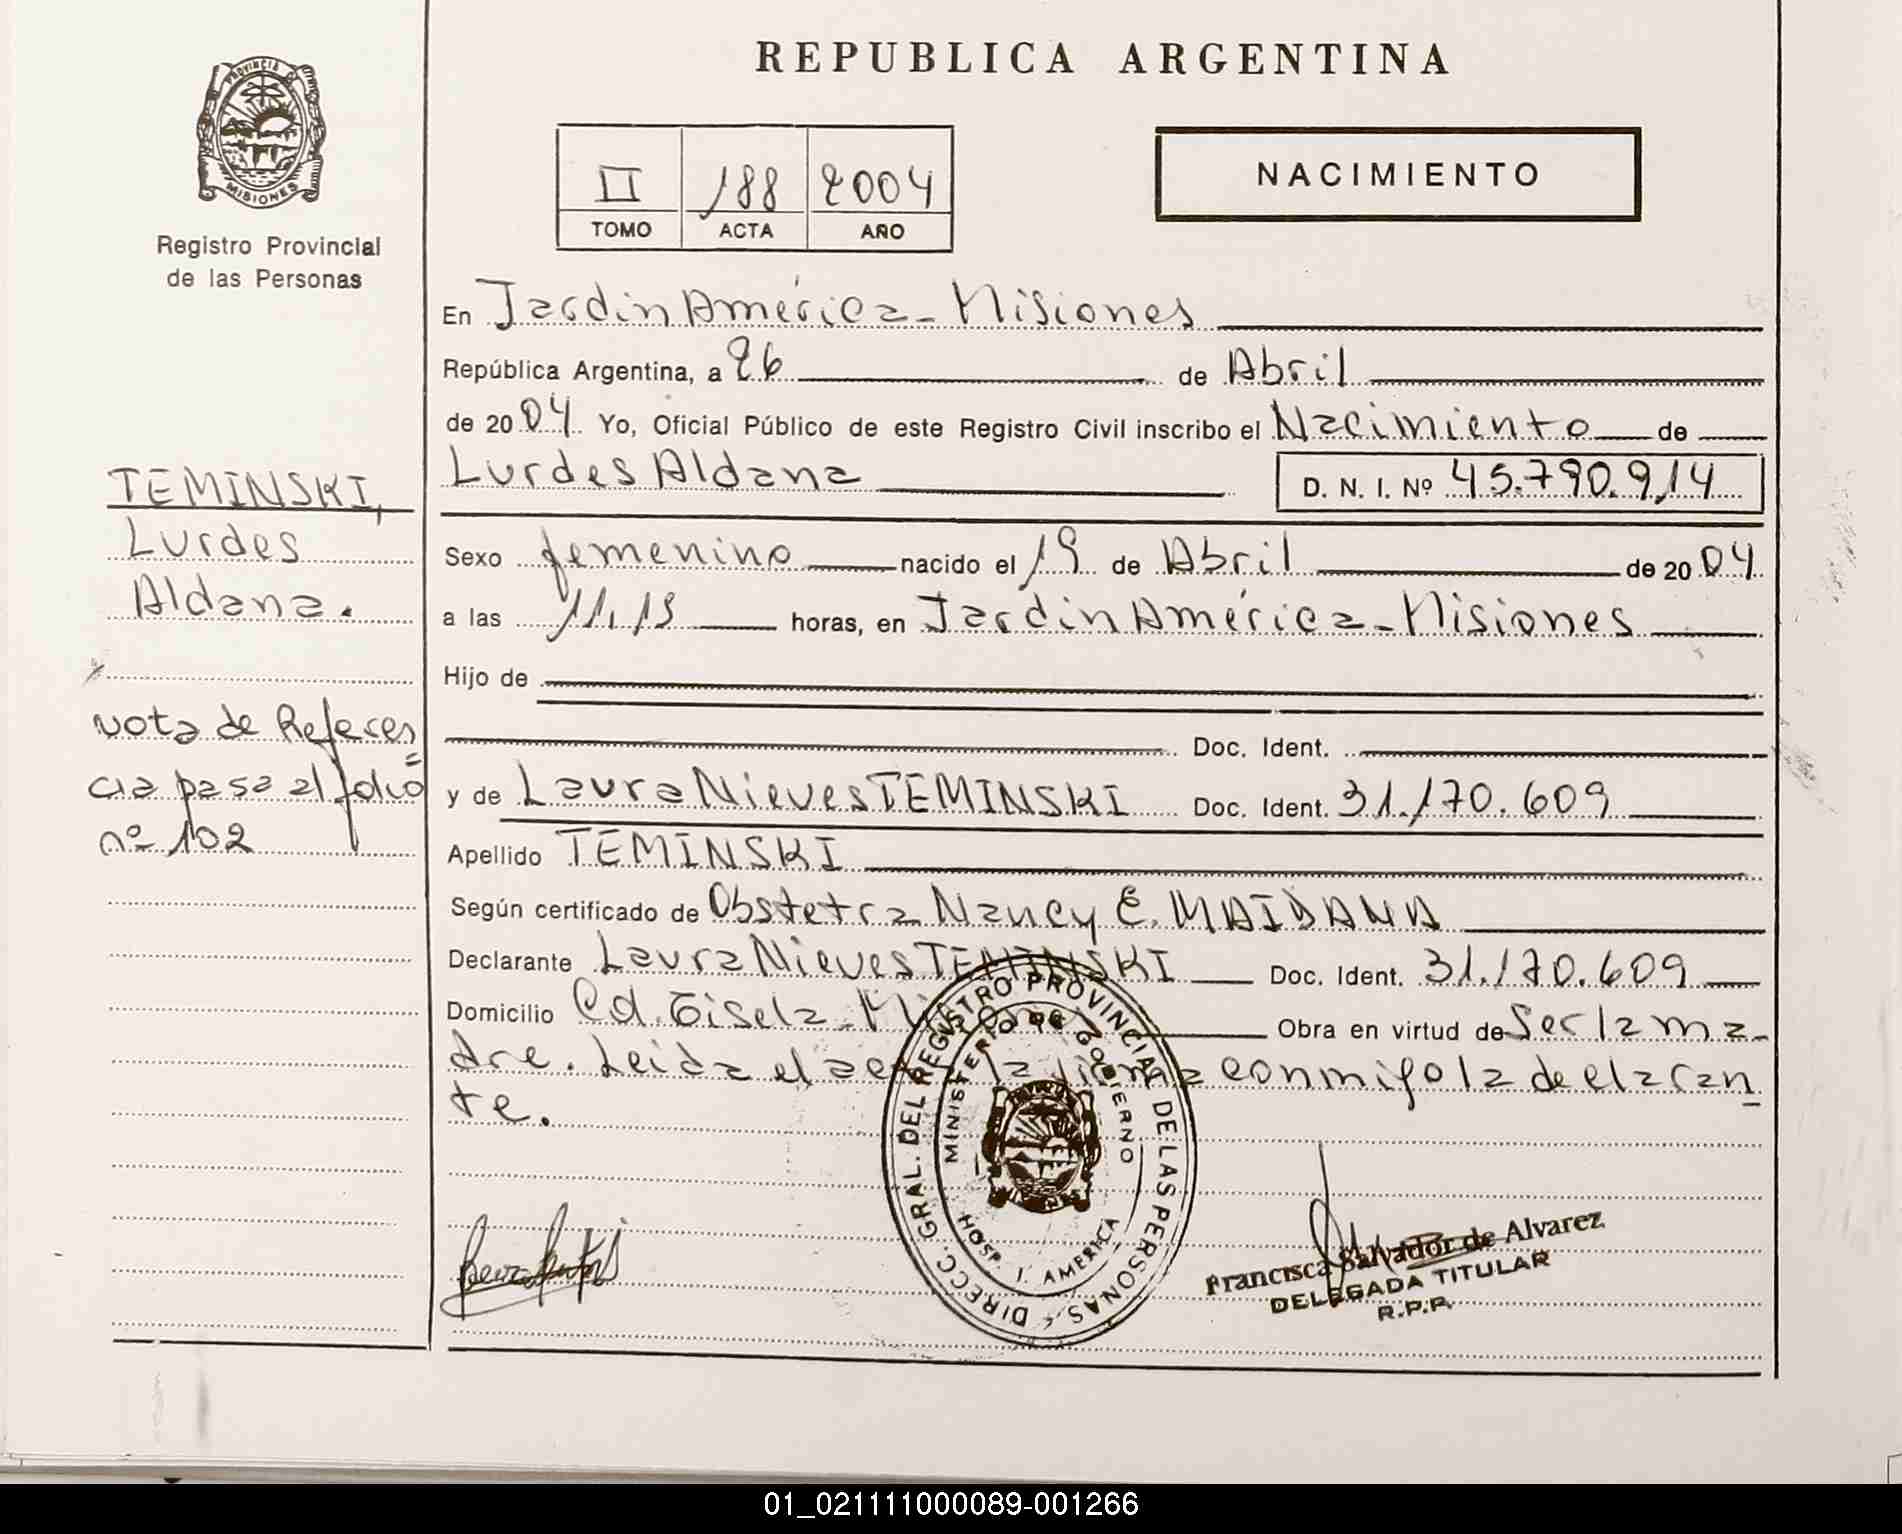 REPUBLICA ARGENTINA
PROVINCIA DE MISIONES
Registro Provincial
de las Personas
II 188 2004
TOMO ACTA AÑO
NACIMIENTO
En Jardin América - Misiones
República Argentina, a 26 de Abril
de 2004 Yo, Oficial Público de este Registro Civil inscribo el Nacimiento de
Lurdes Aldana D. N. I. Nº 45.790.914
TEMINSKI,
Lurdes
Aldana.
Sexo femenino nacido el 19 de Abril de 2004
a las 11,15 horas, en Jardin América - Misiones
Hijo de
Doc. Ident.
nota de Referen=
cia pasa al folio
nº 102
y de Laura Nieves TEMINSKI Doc. Ident. 31.170.609
Apellido TEMINSKI
Según certificado de Obstetra Nancy E. MAIDANA
Declarante Laura Nieves TEMINSKI Doc. Ident. 31.170.609
Domicilio Cd. Gisela - Misiones Obra en virtud de Ser la ma-
dre. Leida el acta la firma conmigo la declaran
te.
DIRECC. GRAL. DEL REGISTRO PROVINCIAL DE LAS PERSONAS
MINISTERIO DE GOBIERNO
HOSP. J. AMERICA
Francisca Salvador de Alvarez
DELEGADA TITULAR
R.P.P.
01_021111000089-001266